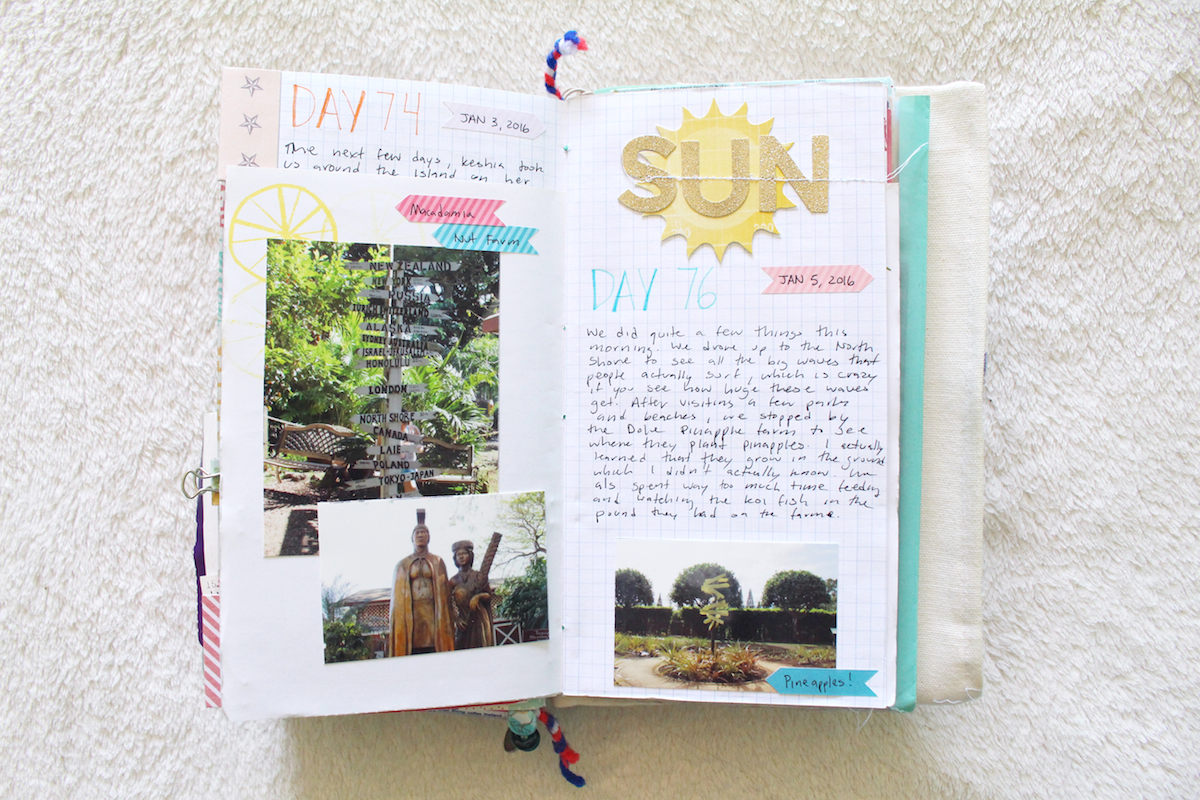 DAY 74
JAN 3, 2016
The next few days, keshia took
us around the island on her
Macadamia
Nut Farm
NEW ZEALAND
RUSSIA
ALASKA
SYDNEY AUSTRALIA
ISRAEL-JERUSALEM
HONOLULU
LONDON
NORTH SHORE
CANADA
LAIE
POLAND
TOKYO-JAPAN
SUN
DAY 76
JAN 5, 2016
We did quite a few things this
morning. We drove up to the North
Shore to see all the big waves that
people actually surf, which is crazy
if you see how huge these waves
get. After visiting a few parks
and beaches, we stopped by
the Dole Pinapple farm to see
where they plant pinapples. I actually
learned that they grow in the ground
which I didn't actually know. We
als spent way too much time feeding
and watching the koi fish in the
pound they had on the farm.
Pineapples!